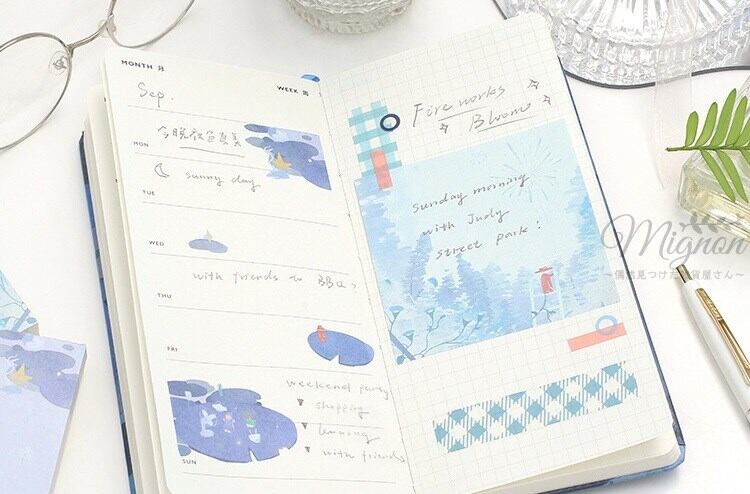 MONTH 月
WEEK 周
Sep.
今晚夜色真美
MON
sunny day
TUE
WED
with friends to BBQ
THU
FRI
weekend party
shopping
learning
with friends
SUN
Fire works
Bloom
sunday morning
with Judy
street park!
Mignon
～偶然見つけた雑貨屋さん～